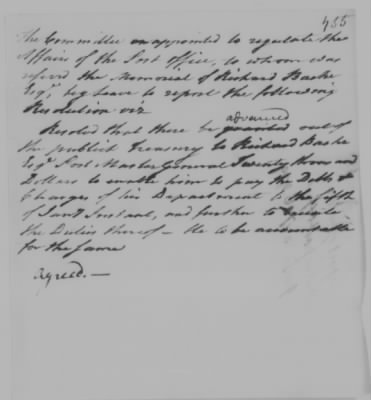 455
The Committee on appointed to regulate the
Affairs of the Post Office, to whom was
referd the Memorial of Richard Bache
Esqr, beg leave to report the following
Resolution viz
advanced
Resolved that there be granted out of
the publick Treasury to Richard Bache
Esqr. Post Master General Twenty thousand
Dollars to enable him to pay the Debts &
Charges of his Department to the fifth
of Jany Instant, and further to execute
the Duties thereof — He to be accountable
for the same
Agreed. —